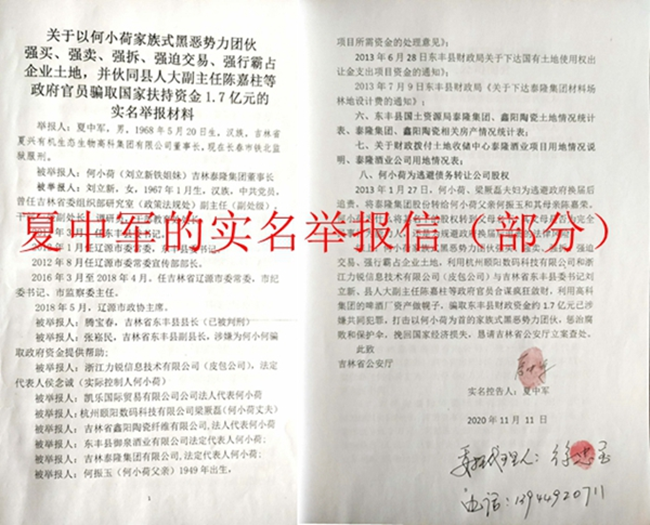 关于以何小荷家族式黑恶势力团伙
强买、强卖、强拆、强迫交易、强行霸占
企业土地，并伙同县人大副主任陈嘉柱等
政府官员骗取国家扶持资金1.7亿元的
实名举报材料
举报人：夏中军，男，1968年5月20日生，汉族，吉林省
夏兴有机生态生物高科集团有限公司董事长，现在长春市铁北监
狱服刑。
被举报人：何小荷（刘立新铁姐妹）吉林泰隆集团董事长
被举报人：刘立新，女，1967年1月生，汉族，中共党员，
曾任吉林省委组织部研究室（政策法规处）副主任（副处级）
夏中军的实名举报信（部分）
2012年8月任辽源市委常委宣传部部长。
2016年3月至2018年4月，任吉林省辽源市委常委、市纪
委书记、市监察委主任。
2018年5月，辽源市政协主席。
被举报人：腾宝春，吉林省东丰县县长（已被判刑）
被举报人：张嘉民，吉林省东丰县副县长，涉嫌为何小何骗
取政府资金提供帮助；
被举报人：浙江力锐信息技术有限公司（皮包公司），法定
代表人侯念诚（实际控制人何小荷）
被举报人：凯乐国际贸易有限公司公法人代表何小荷
被举报人：杭州颐阳数码科技有限公司梁厥磊（何小荷丈夫）
被举报人：吉林省鑫阳陶瓷纤维有限公司，法人代表何小荷
被举报人：东丰县御泉酒业有限公司法定代表人何小荷；
被举报人：吉林泰隆集团有限公司法定代表人何小荷；
被举报人：何振玉（何小荷父亲）1949年出生，
1
项目所需资金的处理意见》；
2013年6月28日东丰县财政局关于下达国有土地使用权出
让金支出项目资金的通知》；
2013年7月9日东丰县财政局《关于下达泰隆集团材料场
林地设计费的通知》；
六、东丰县国土资源局泰隆集团、鑫阳陶瓷土地情况统计
表、泰隆集团、鑫阳陶瓷相关房产情况统计表；
七、关于财政拨付土地收储中心泰隆酒业项目用地情况说
明、泰隆酒业公司用地情况表；
八、何小荷为逃避债务转让公司股权
2013年1月27日，何小荷、梁厥磊夫妇为逃避政府换届后
追责，将泰隆集团股份转给何小荷父亲何振玉和其母亲陈慕荣。
强买、强卖、强拆、强迫交易、
强行霸占企业土地，利用杭州颐阳数码科技有限公司和浙
江力锐信息技术有限公司（皮包公司）与吉林省东丰县委书记刘
立新、县人大副主任陈嘉柱等政府官员合谋疯狂敛财，利用高科
集团的啤酒厂资产做幌子，骗取东丰县财政资金约1.7亿元已涉
嫌共同犯罪，打击以何小荷为首的家族式黑恶势力团伙，惩治腐
败和保护伞，挽回国家经济损失，恳请吉林省公安厅立案查处。
此致
吉林省公安厅
夏中军
实名控告人：夏中军
2020年11月11日
委托代理人：徐忠玉
电话：13944920711